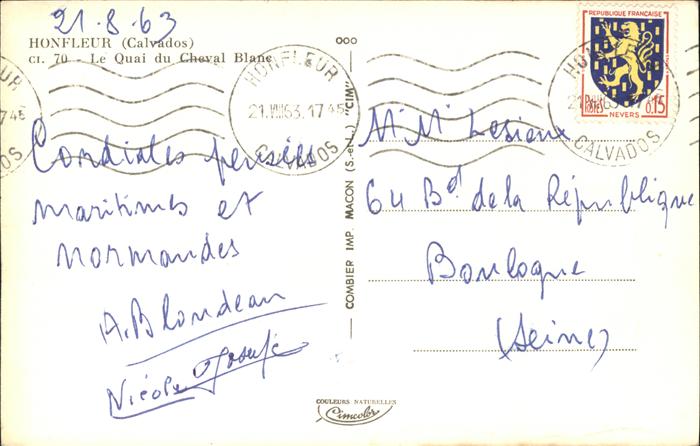 21-8-63
HONFLEUR (Calvados)
CI. 70 - Le Quai du Cheval Blanc
Cordiales pensées
maritimes et
normandes
A. Blondeau
Nicole
COMBIER IMP. MACON (S.-et-L.) "CIM"
HONFLEUR
21.VIII63.17 45
CALVADOS
REPUBLIQUE FRANÇAISE
POSTES
0,15
NEVERS
HONFLEUR
CALVADOS
17 45
M. Mme Lesieur
64 Bd de la République
Boulogne
(Seine)
COULEURS NATURELLES
Cimcolor